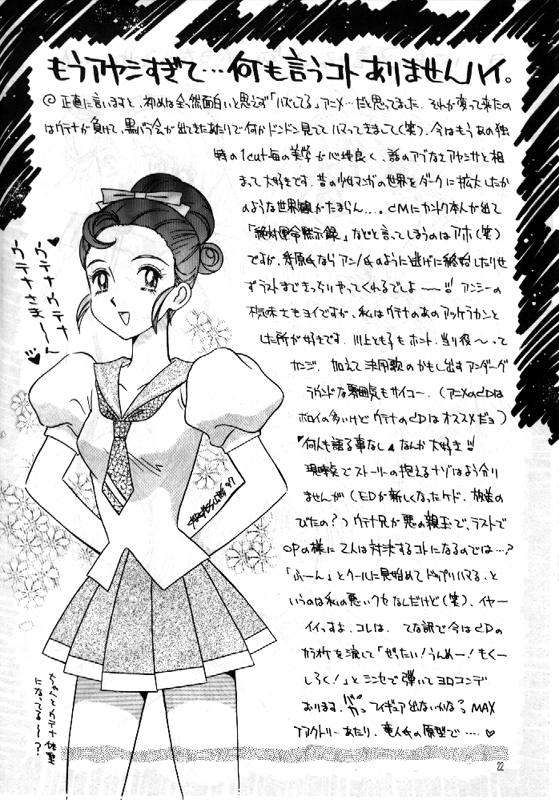 もうアヤシすぎて…何も言うコトありませんハイ。
◎正直に言いますと、初めは全然面白いと思えず「ハズしてる」アニメ…だと思ってました。それが変って来たの
はウテナが負けて、黒バラ会が出てきたあたりで何かドンドン見ててハマってきまして(笑)、今はもうあの独
特の1cut毎の美学が心地良く、話のアブなさアヤシサと相
まって大好きです。昔の少女マンガの世界をダークに拡大したか
のような世界観がたまらん…。CMにカントク本人が出て
「絶対運命黙示録」などと言ってしまうのはアホ(笑)
ですが、幾原氏ならアンノ氏のように逃げに終始したりせ
ずラストまできっちりやってくれるでしょ〜〜!!! アンシーの
不気味さもヨイですが、私はウテナのあのアッケラカンと
した所が好きです。川上とも子もホント、当り役〜って
カンジ。加えて決闘歌のかもし出すアンダーグ
ラウンドな雰囲気もサイコー。(アニメのCDは
ボロイの多いけどウテナのCDはオススメだョ)
「何人も語る事なし」なんか大好き!!
現時点でストーリーの抱えるナゾはよう分り
ませんが(EDが新しくなったケド、放送の
びたの?)ウテナ兄が悪の親玉で、ラストで
OPの様に2人は対決するコトになるのでは…?
「ふーん」とクールに見始めてドップリハマる、と
いうのは私の悪いクセなんだけど(笑)、イヤー
イイっすよ、コレは。 てな訳で今はCDの
カラオケを流して「ぜったい!うんめー!もくー
しろく!」とシンセで弾いてヨロコンデ
おります。バカ。フィギュア出ないかな? MAX
ファクトリーあたり、竜人氏の原型で……♡
ウテナウテナ
ウテナさま〜〜ん♡
ちょっとウテナ体型
になってる〜?
22